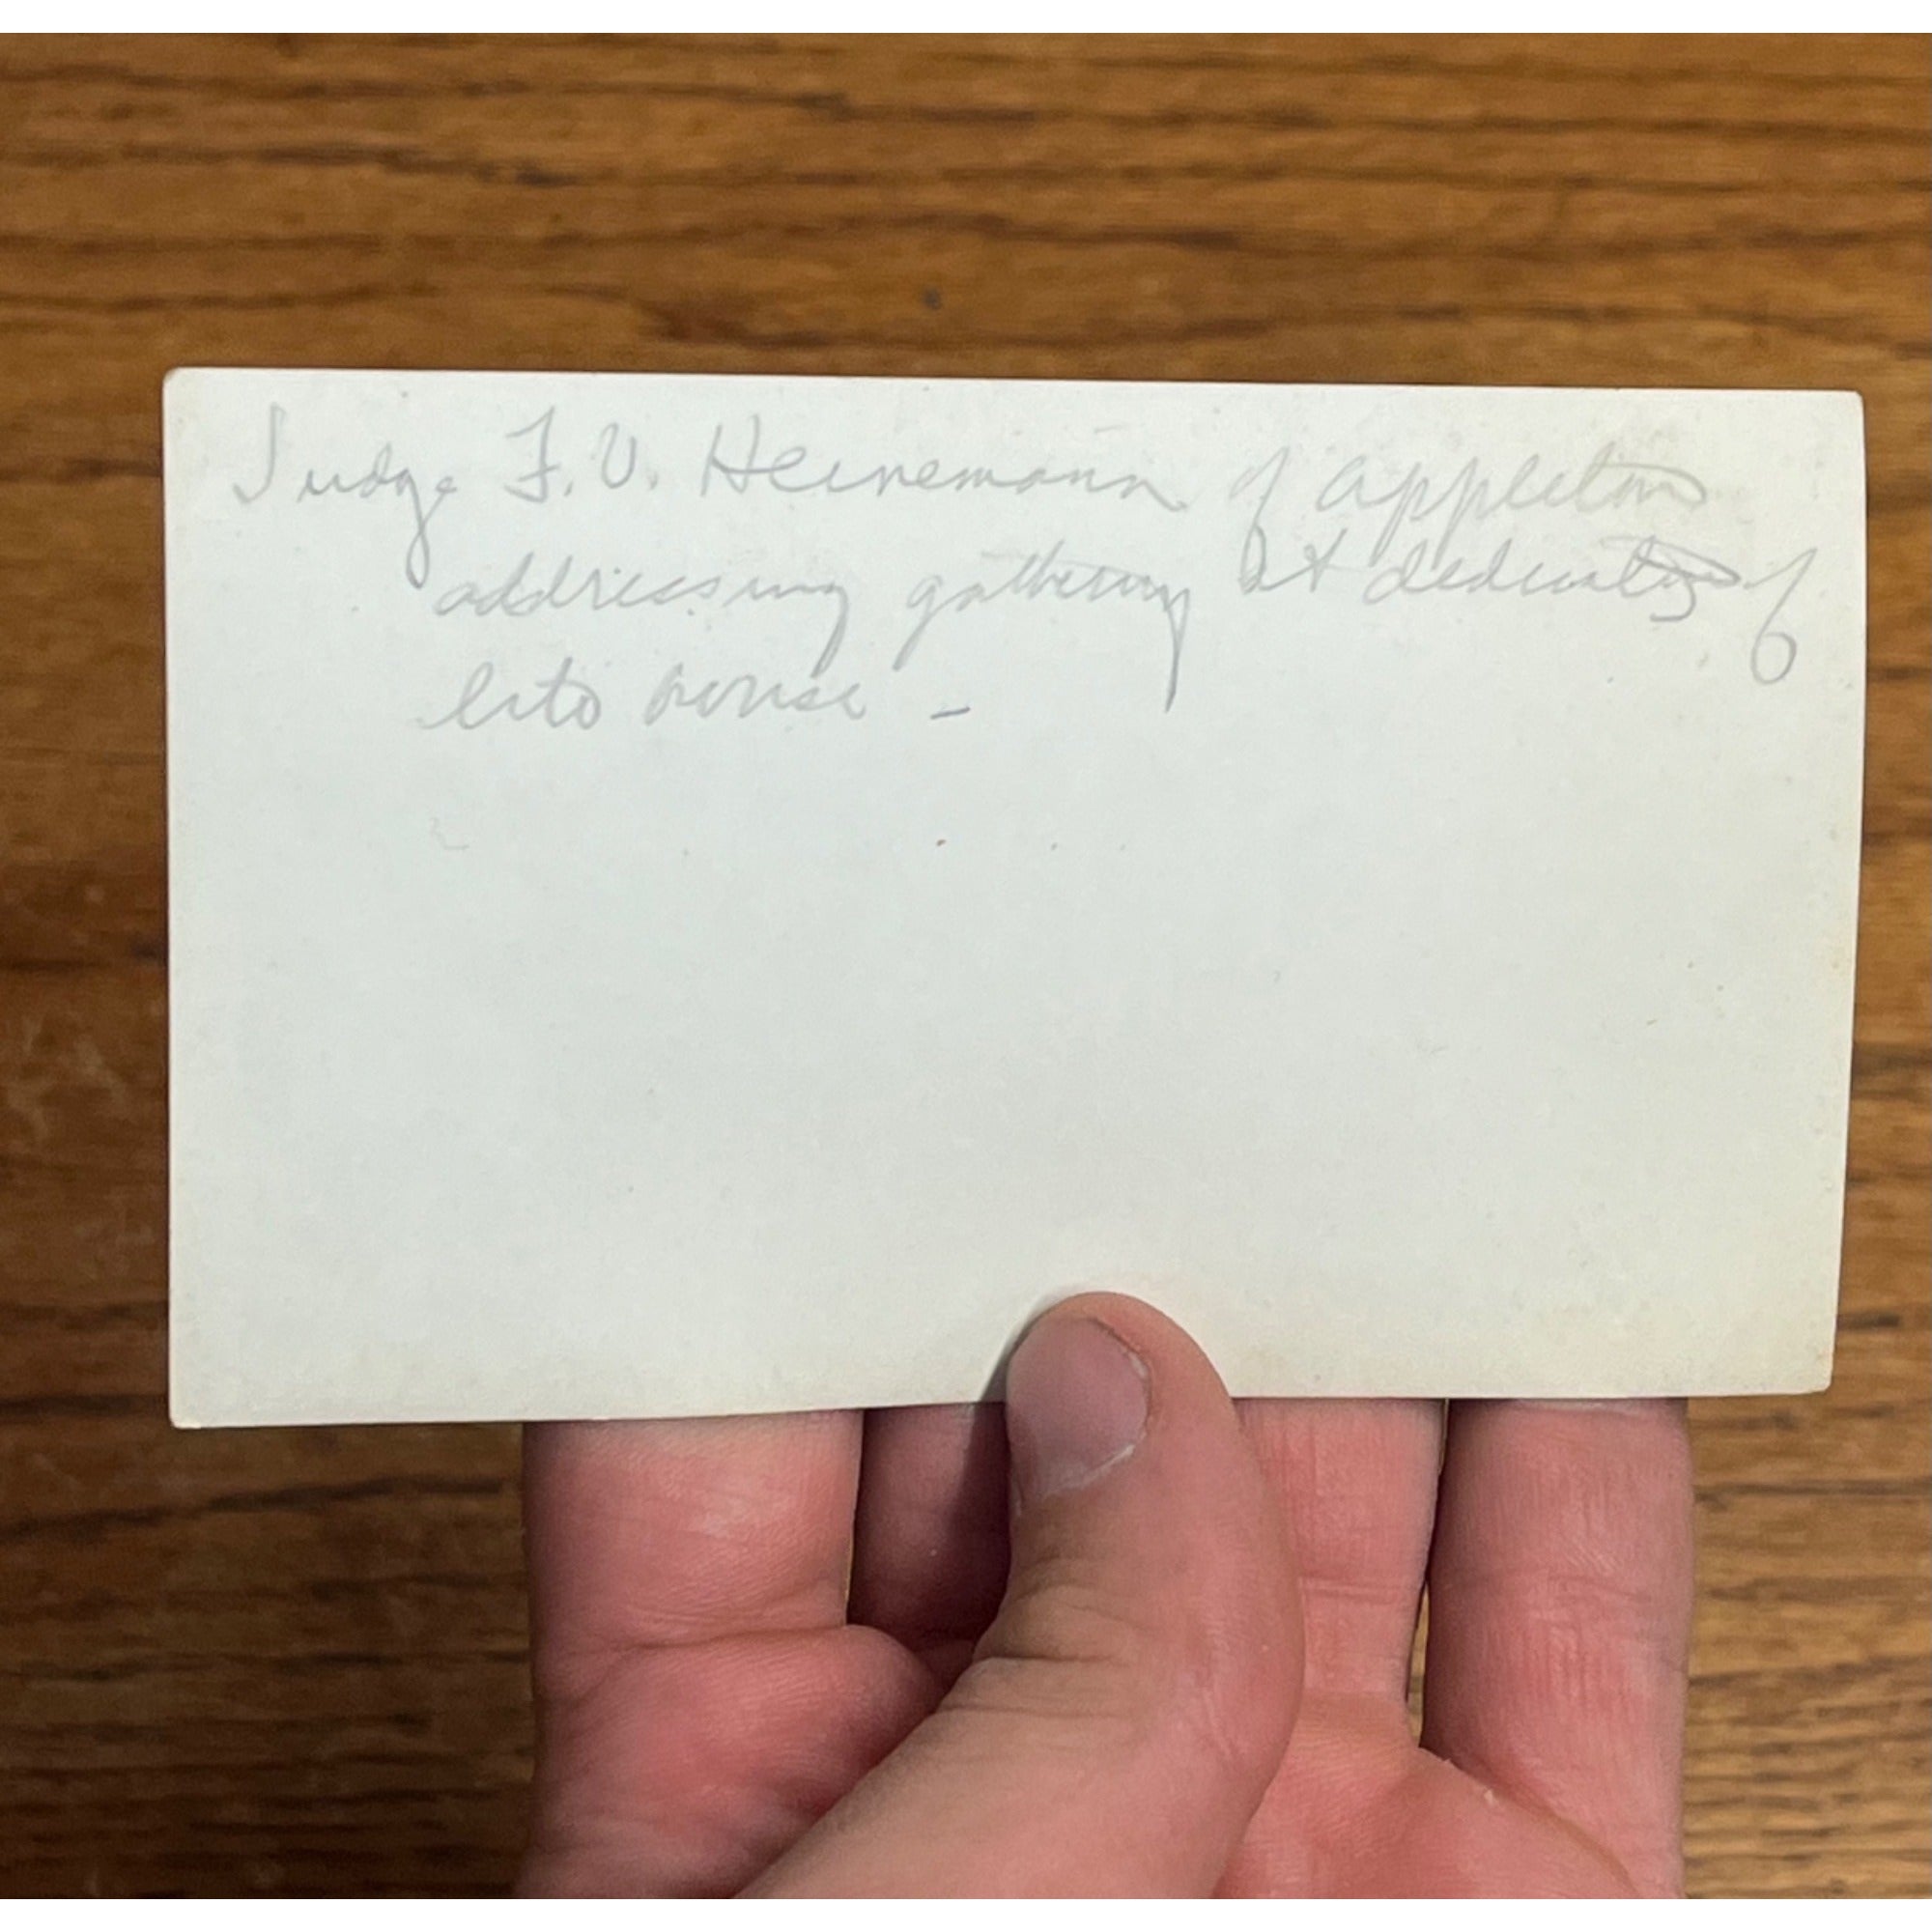 Judge F.V. Heinemann of Appleton
addressing gathering at dedication of
lite house -